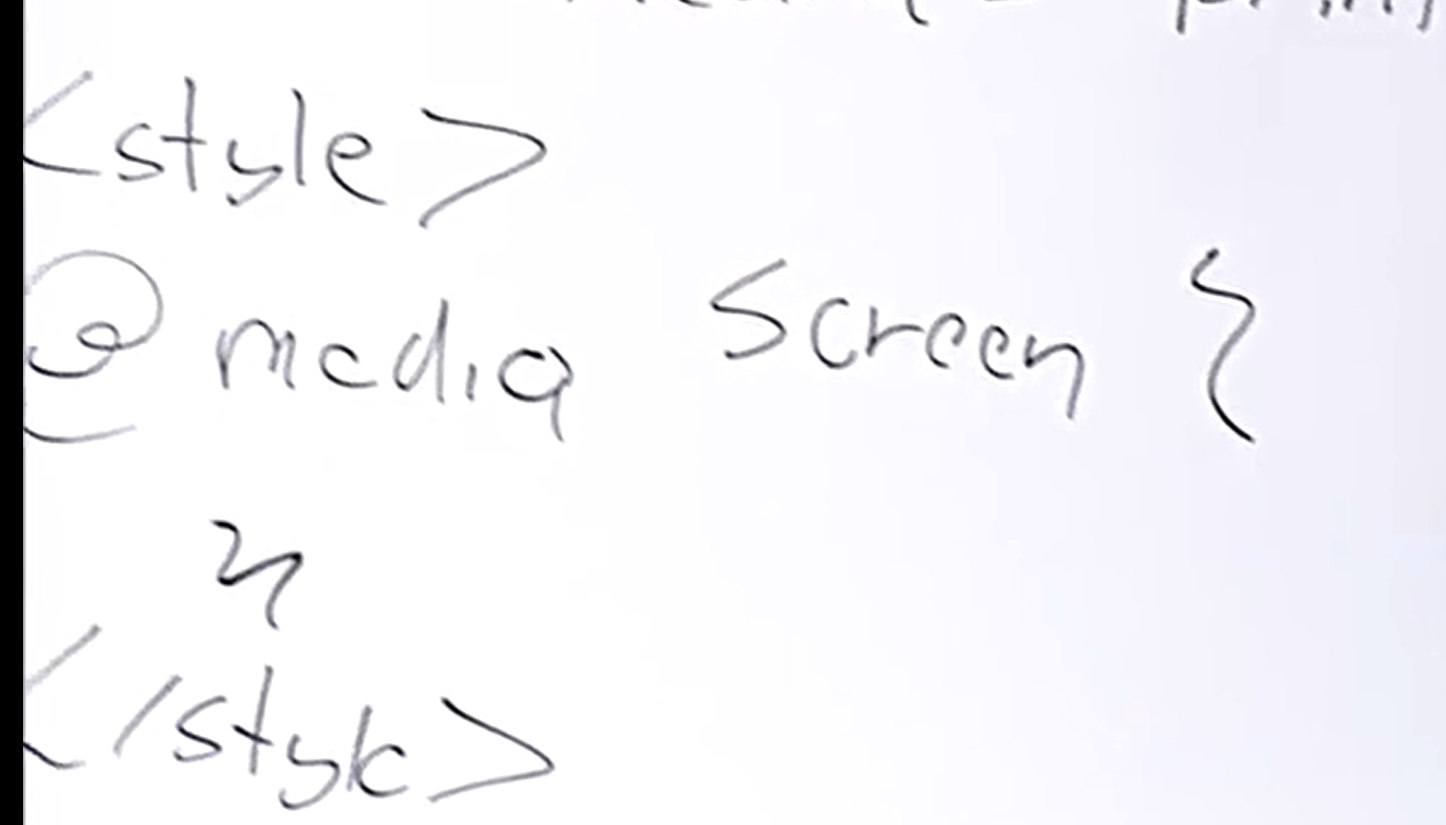 <style>
@media screen {
</style>